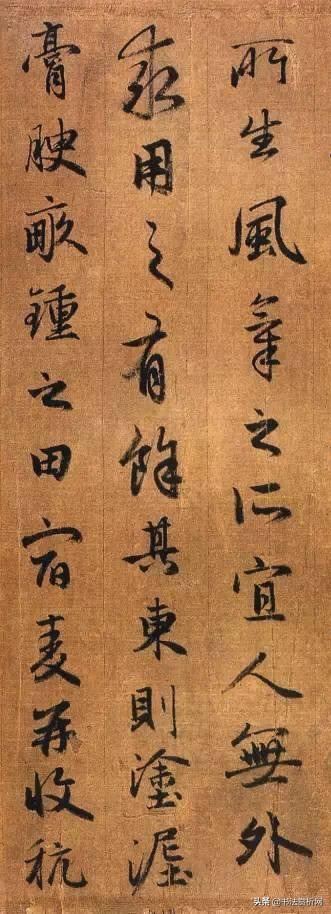 所生風氣之所宜人無外
求用之有餘其東則塗泥
膏腴畝鍾之田宿麥再收秔
头条 @书法赏析网